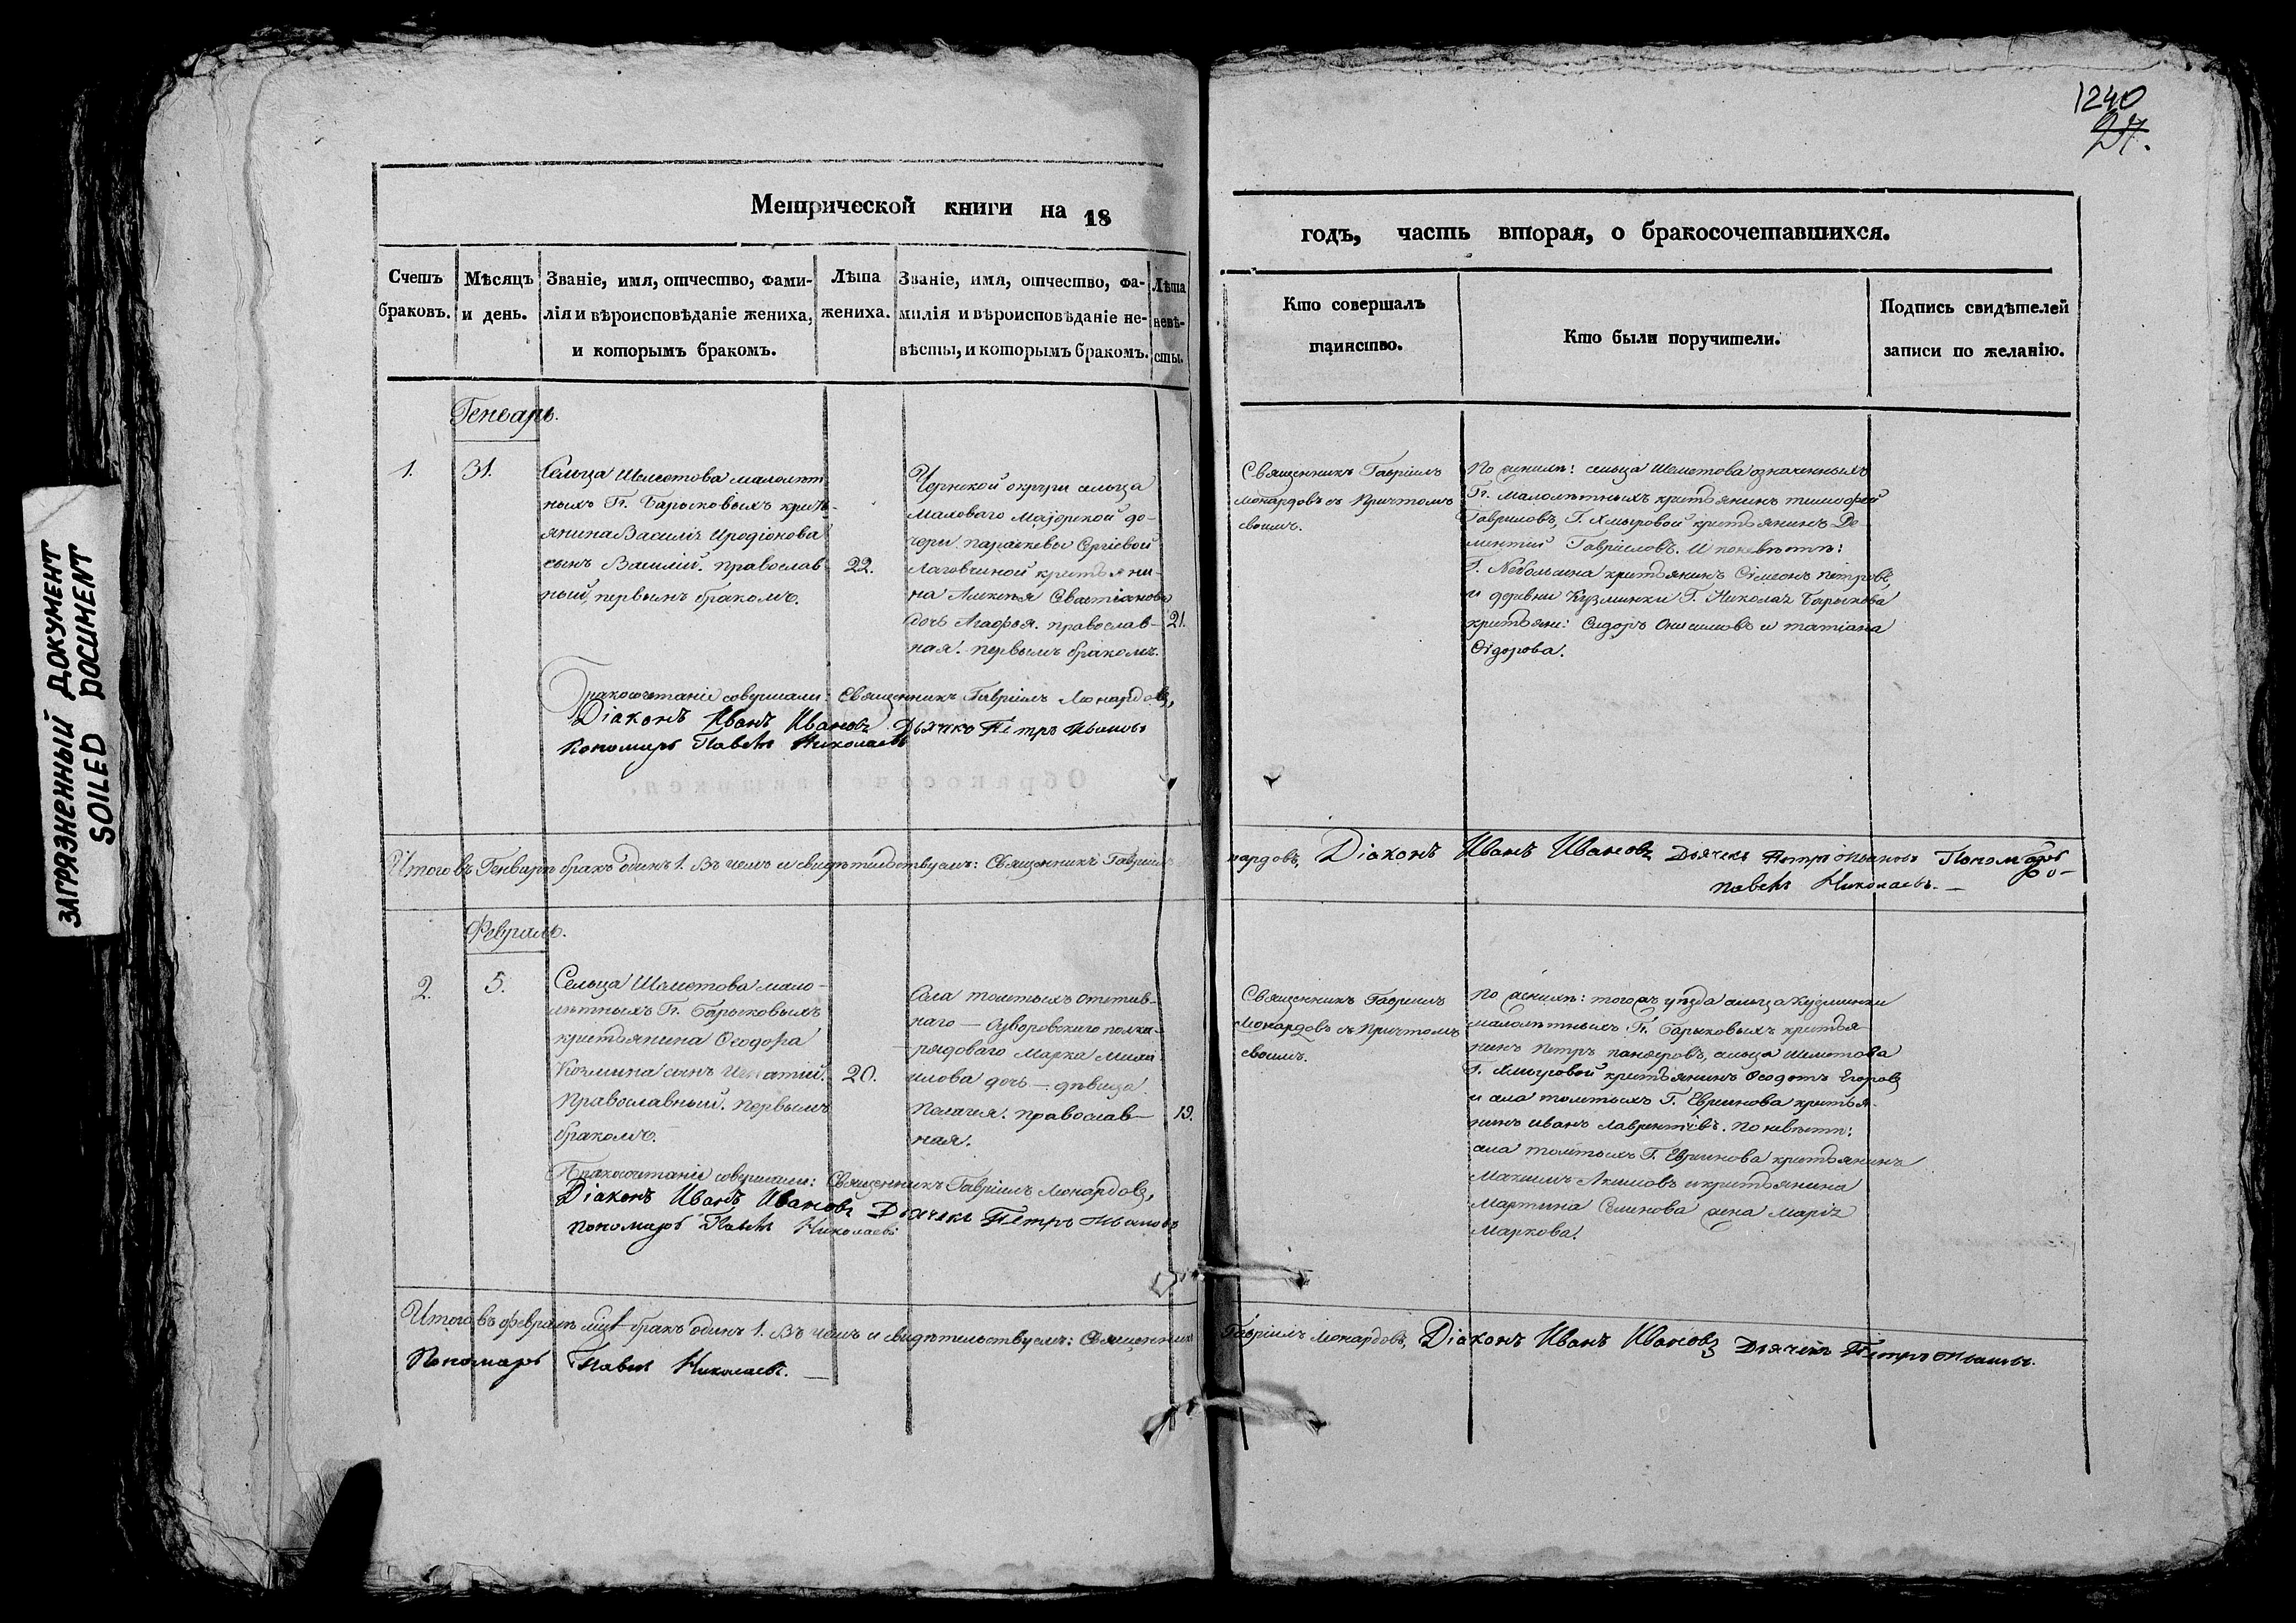 1240
27.
ЗАГРЯЗНЕННЫЙ ДОКУМЕНТ
SOILED DOCUMENT
Метрической книги на 18
годъ, часть вторая, о бракосочетавшихся.
Счетъ браковъ.
Мѣсяцъ и день.
Званіе, имя, отчество, фами-
лія и вѣроисповѣданіе жениха,
и которымъ бракомъ.
Лѣта
жениха.
Званіе, имя, отчество, фа-
милія и вѣроисповѣданіе не-
вѣсты, и которымъ бракомъ.
Лѣта
невѣ-
сты.
Кто совершалъ
таинство.
Кто были поручители.
Подпись свидѣтелей
записи по желанію.
Генварь.
1.
31.
Сельца Шеметова малолѣт
ныхъ Гг. Барыковыхъ кресть-
янина Василія Иродіонова
сынъ Василій. православ
ный, первымъ бракомъ.
22.
Чернской округи сельца
Маловаго Маіорской до-
чери Параскевы Сергіевой
крестьяни-
на Алексѣя Севастіанова
дочь Агафья. православ-
ная. первымъ бракомъ.
21.
Священникъ Гавріилъ
Леонардовъ съ Причтомъ
своимъ.
По женихѣ: сельца Шеметова означенныхъ
Гг. Малолѣтныхъ крестьянинъ Тимофей
Гавриловъ, Г. Хмыровой крестьянинъ До-
ментий Гавриловъ. И по невѣстѣ:
Г. Небольсина крестьянинъ Симеонъ Петровъ,
и деревни Кузминки Г. Николая Барыкова
крестьяне: Сидоръ Онисимовъ и Татіана
Сидорова.
Бракосочетаніе совершали: Священникъ Гавріилъ Леонардовъ,
Діаконъ Иванъ Ивановъ Дьячекъ Петръ Ивановъ
Пономарь Павелъ Николаевъ
Итого въ Генварѣ бракъ одинъ 1. Въ чемъ и свидѣтельствуемъ: Священникъ Гавріилъ
нардовъ, Діаконъ Иванъ Ивановъ Дьячекъ Петръ Ивановъ Пономарь
Павелъ Николаевъ.
Февраль.
2.
5.
Сельца Шеметова мало-
лѣтныхъ Гг. Барыковыхъ
крестьянина Ѳеодора
Козмина сынъ Игнатий.
Православный. Первымъ
бракомъ.
20.
Села Толстыхъ отстав-
наго — Суворовскаго полка-
рядоваго Марка Михаи
илова дочь — дѣвица
Пелагея. православ-
ная.
19.
Священникъ Гавріилъ
Леонардовъ съ Причтомъ
своимъ.
По женихѣ: того жъ уѣзда сельца Кузминки
малолѣтныхъ Гг. Барыковыхъ крестья-
нинъ Петръ сельца Шеметова
Г. Хмыровой крестьянинъ Ѳеодотъ Егоровъ
и села Толстыхъ Г. Евреинова крестья-
нинъ Иванъ Лаврентіевъ. По невѣстѣ:
села Толстыхъ Г. Евреинова крестьянинъ
Максимъ Акимовъ и крестьянина
Мартина Семенова жена Марія
Маркова.
Бракосочетаніе совершали: Священникъ Гавріилъ Леонардовъ,
Діаконъ Иванъ Ивановъ Дьячекъ Петръ Ивановъ
Пономарь Павелъ Николаевъ
Итого въ февралѣ мцѣ бракъ одинъ 1. Въ чемъ и свидѣтельствуемъ: Священникъ
Гавріилъ Леонардовъ, Діаконъ Иванъ Ивановъ Дьячекъ Петръ Ивановъ.
Пономарь Павелъ Николаевъ.